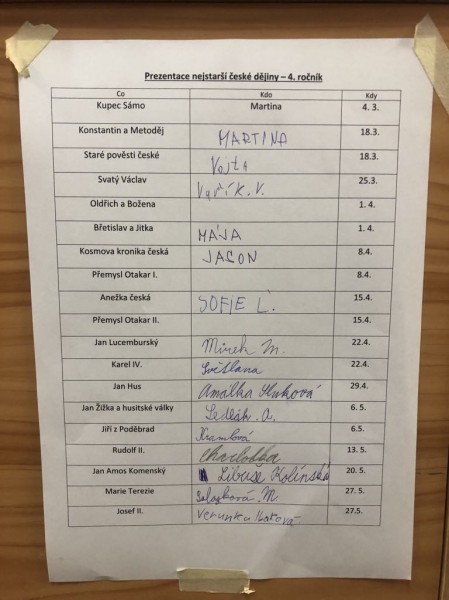 Prezentace nejstarší české dějiny – 4. ročník
Co Kdo Kdy
Kupec Sámo Martina 4. 3.
Konstantin a Metoděj MARTINA 18.3.
Staré pověsti české Vojta 18.3.
Svatý Václav K. V. 25.3.
Oldřich a Božena 1. 4.
Břetislav a Jitka MÁJA 1. 4.
Kosmova kronika česká JASON 8.4.
Přemysl Otakar I. 8.4.
Anežka česká SOFIE L. 15.4.
Přemysl Otakar II. 15.4.
Jan Lucemburský Mirek M. 22.4.
Karel IV. Světlana 22.4.
Jan Hus Amálka 29.4.
Jan Žižka a husitské války Sedlák. A. 6.5.
Jiří z Poděbrad 6.5.
Rudolf II. Charlotta 13. 5.
Jan Amos Komenský Libuše Kolínská 20. 5.
Marie Terezie M 27. 5.
Josef II. 27.5.